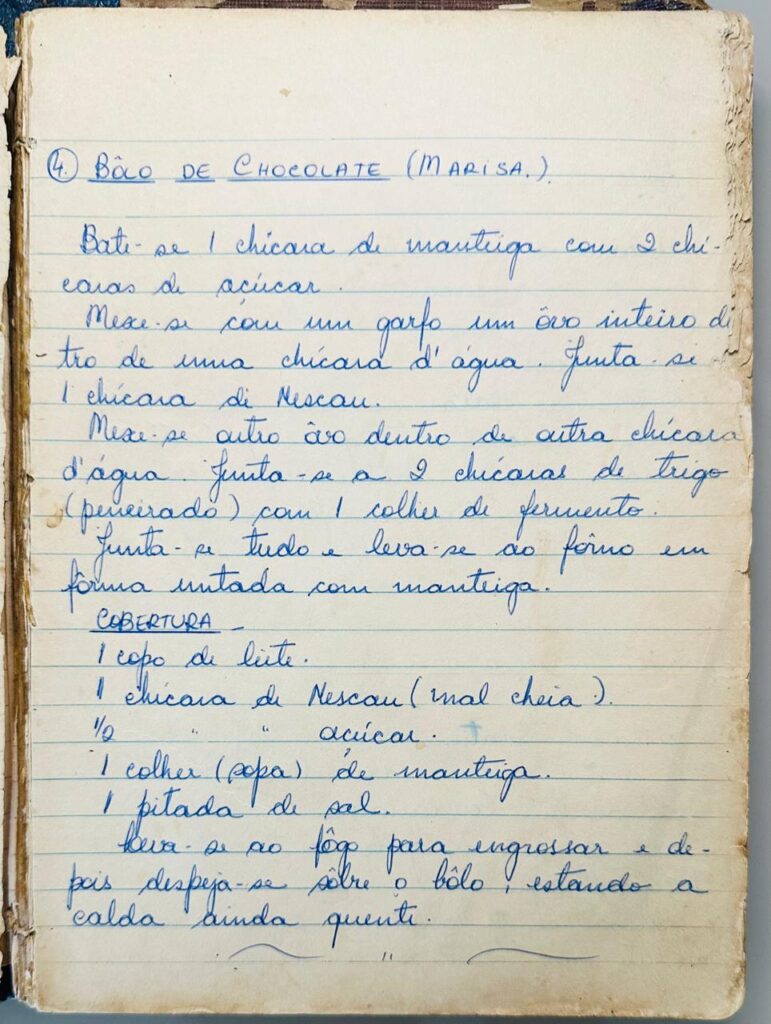 4. BÔLO DE CHOCOLATE (MARISA.).
Bate-se 1 chícara de manteiga com 2 chí-
caras de açúcar.
Mexe-se com um garfo um ôvo inteiro de
-tro de uma chícara d'água. Junta-se
1 chícara de Nescau.
Mexe-se outro ôvo dentro de outra chícara
d'água. Junta-se a 2 chícaras de trigo
(peneirado) com 1 colher de fermento.
Junta-se tudo e leva-se ao fôrno em
fôrma untada com manteiga.
COBERTURA -
1 copo de leite.
1 chícara de Nescau (mal cheia).
1/2 " " açúcar.
1 colher (sopa) de manteiga.
1 pitada de sal.
Leva-se ao fôgo para engrossar e de-
pois despeja-se sôbre o bôlo, estando a
calda ainda quente.
"